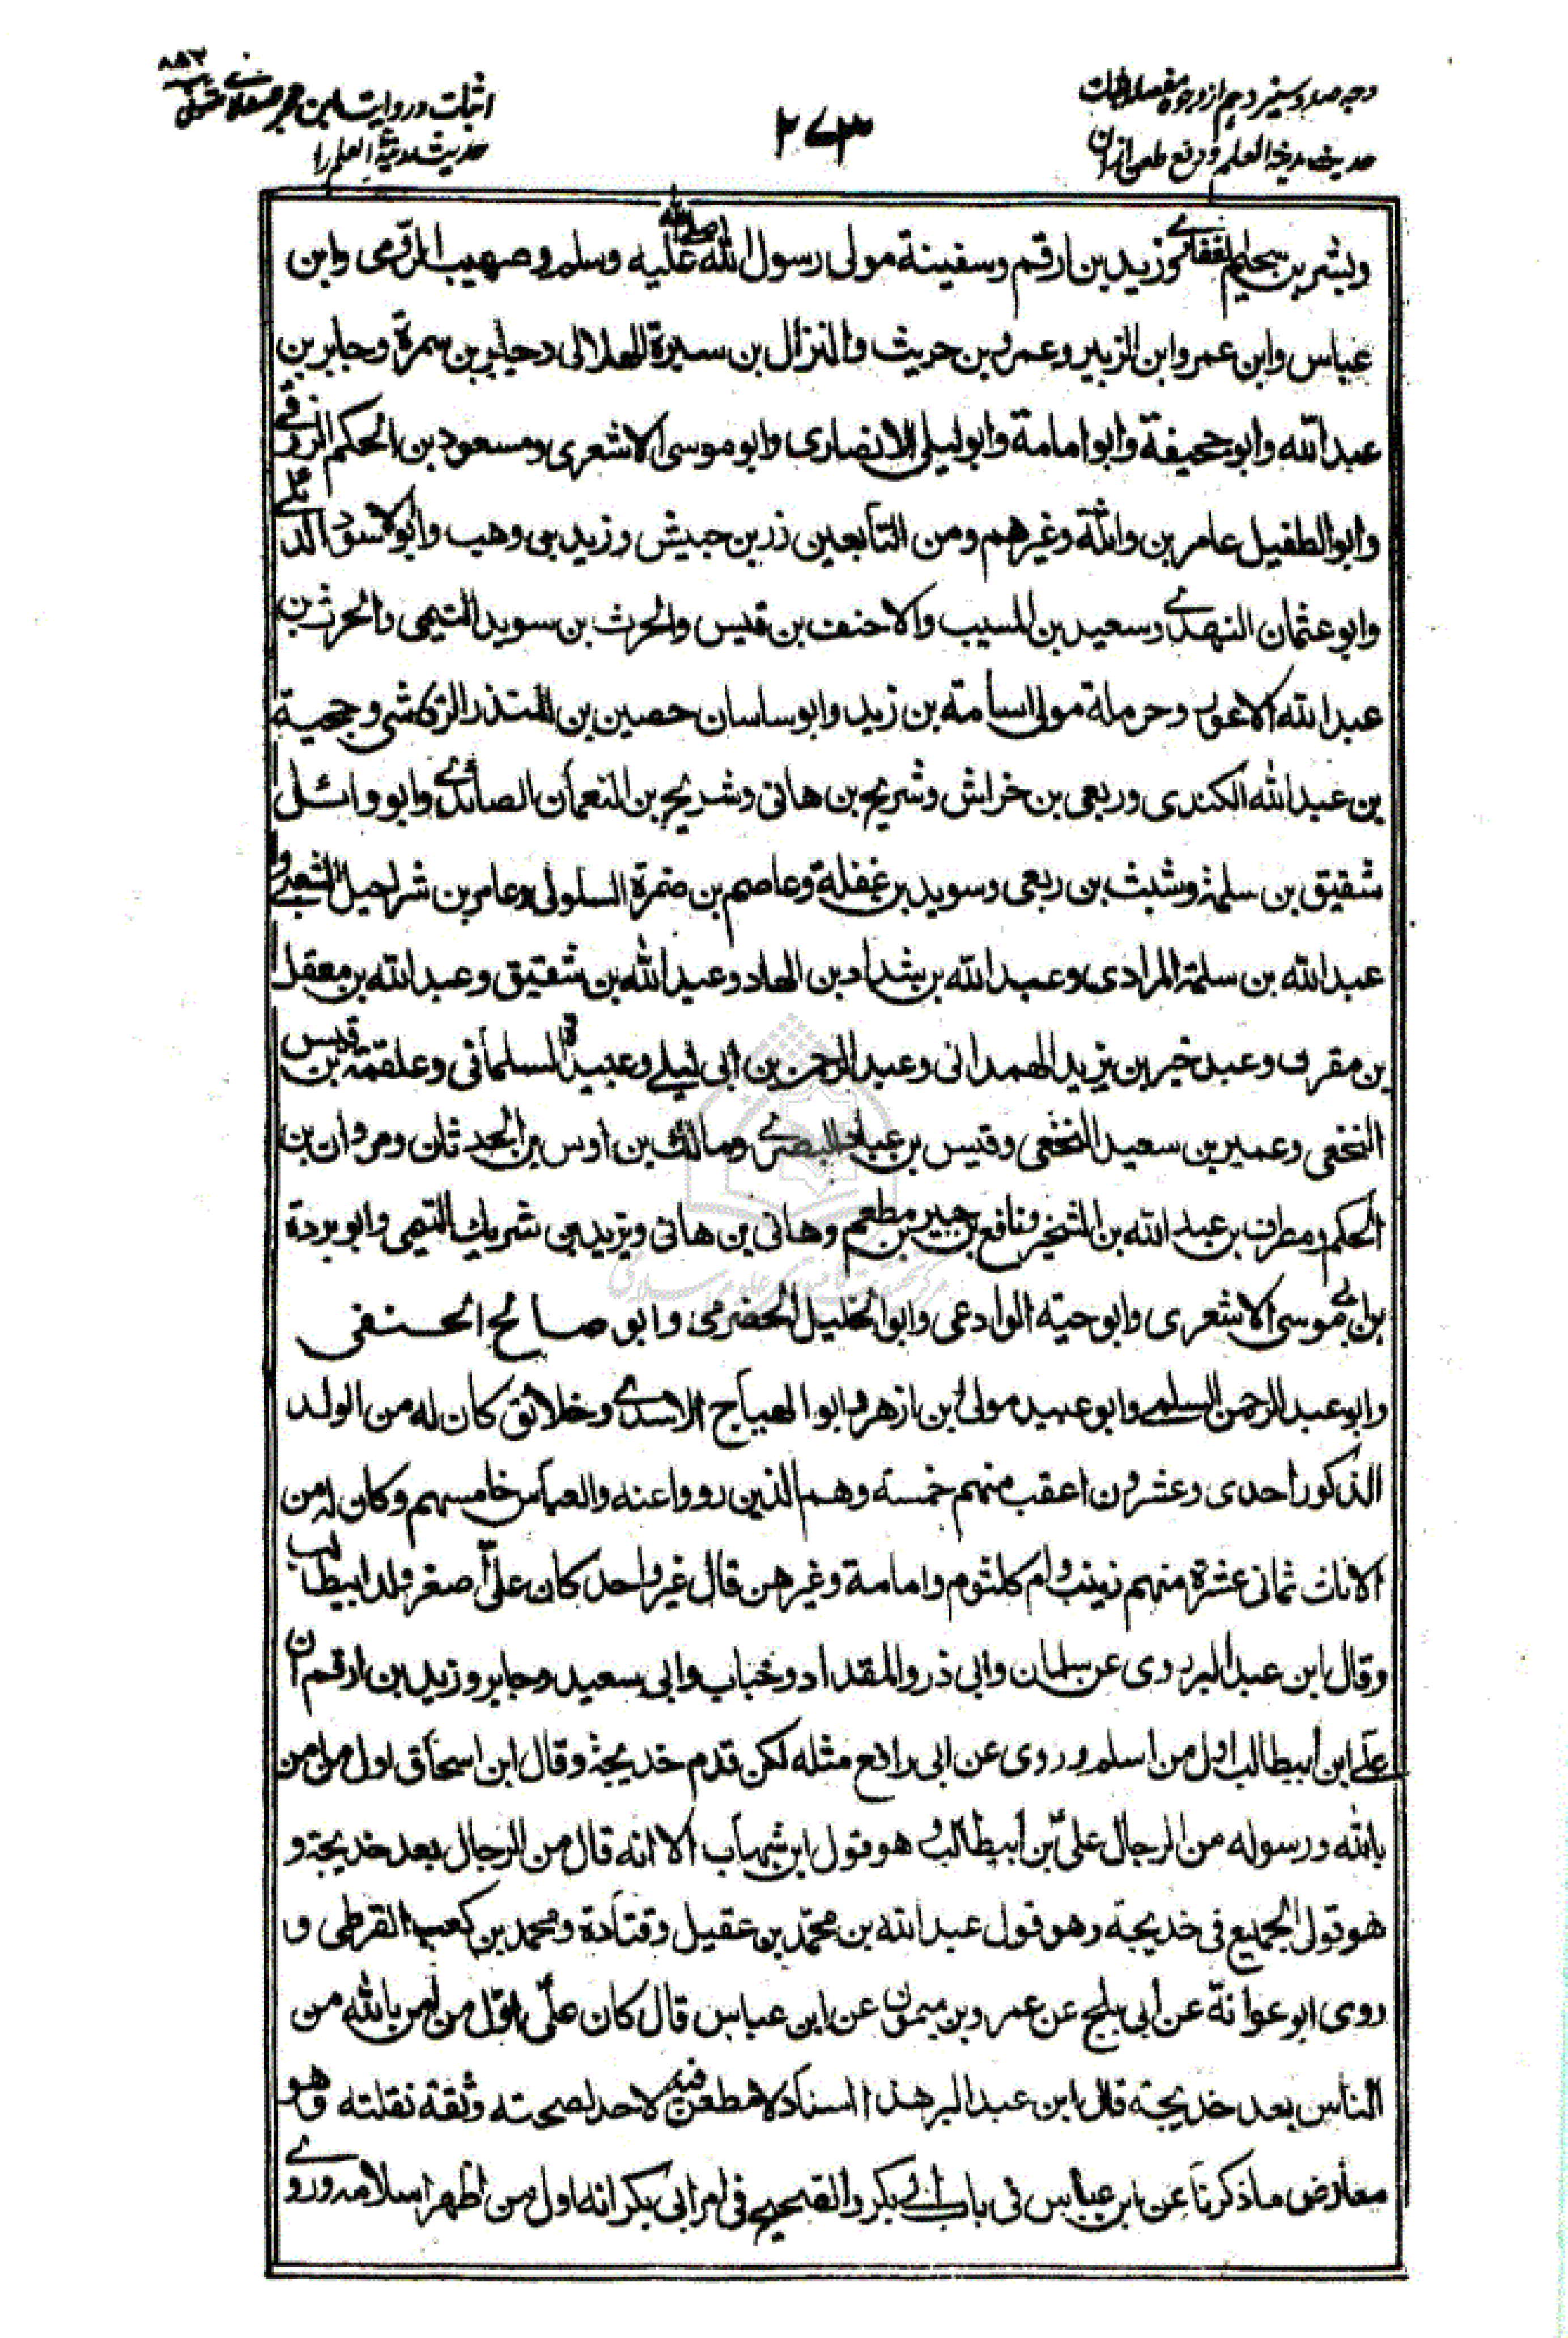 وجه صد و سیزدهم از وجوه مفصلة اثبات
حدیث مدینة العلم و دفع طعن از آن
۲۷۳
اثبات و روایت ابن حجر عسقلانی متوفی ۸۵۲
حدیث مدینة العلم را
وبشر بن سحيم الغفاري وزيد بن ارقم وسفينة مولى رسول الله صلى الله عليه وسلم وصهيب الرومى وابن
عباس وابن عمر وابن الزبير وعمرو بن حريث والنزال بن سبرة الهلالى وجابر بن سمرة وجابر بن
عبد الله وابو جحيفة وابو امامة وابو ليلى الانصارى وابو موسى الاشعرى ومسعود بن الحكم الزرقى
وابو الطفيل عامر بن واثلة وغيرهم ومن التابعين زر بن حبيش وزيد بن وهب وابو الاسود الدئلى
وابو عثمان النهدى وسعيد بن المسيب والاحنف بن قيس والحرث بن سويد التيمى والحرث بن
عبد الله الاعور وحرملة مولى اسامة بن زيد وابو ساسان حصين بن المنذر الرقاشى وحجية
بن عبد الله الكندى وربعى بن خراش وشريح بن هانى وشريح بن النعمان الصائدى وابو وائل
شقيق بن سلمة وشبث بن ربعى وسويد بن غفلة وعاصم بن ضمرة السلولى وعامر بن شراحيل الشعبى و
عبد الله بن سلمة المرادى وعبد الله بن شداد بن الهاد وعبد الله بن شقيق وعبد الله بن معقل
بن مقرن وعبد خير بن يزيد الهمدانى وعبد الرحمن بن ابى ليلى وعبيدة السلمانى وعلقمة بن قيس
النخعى وعمير بن سعيد النخعى وقيس بن عباد البصرى ومالك بن اوس بن الحدثان ومروان بن
الحكم ومطرف بن عبد الله بن الشخير ونافع بن جبير بن مطعم وهانى بن هانى ويزيد بن شريك التيمى وابو بردة
بن ابى موسى الاشعرى وابو حية الوادعى وابو الخليل الحضرمى وابو صالح الحنفى
وابو عبد الرحمن السلمى وابو عبيد مولى ابن ازهر وابو الهياج الاسدى وخلائق كان له من الولد
الذكور احدى وعشرون اعقب منهم خمسة وهم الذين رووا عنه والعباس خامسهم وكان له من
الاناث ثمانى عشرة منهم زينب وام كلثوم وامامة وغيرهن قال غير واحد كان علىّ اصغر ولد ابيطالب
وقال ابن عبد البر روى عن سلمان وابى ذر والمقداد وخباب وابى سعيد وجابر وزيد بن ارقم ان
على ابن ابيطالب اول من اسلم وروى عن ابى رافع مثله لكن قدم خديجة وقال ابن اسحاق اول من امن
بالله ورسوله من الرجال علىّ بن ابيطالب وهو قول ابن شهاب الا انه قال من الرجال بعد خديجة و
هو قول الجميع فى خديجة وهو قول عبد الله بن محمّد بن عقيل وقتادة ومحمد بن كعب القرظى و
روى ابو عوانة عن ابى بلج عن عمرو بن ميمون عن ابن عباس قال كان علىّ اوّل من امن بالله من
الناس بعد خديجة قال ابن عبد البر هذا اسناد لا مطعن فيه لاحد لصحته وثقة نقلته وهو
معارض ما ذكرنا عن ابن عباس فى باب ابى بكر والصحيح فى امر ابى بكر انه اول من اظهر اسلامه وروى